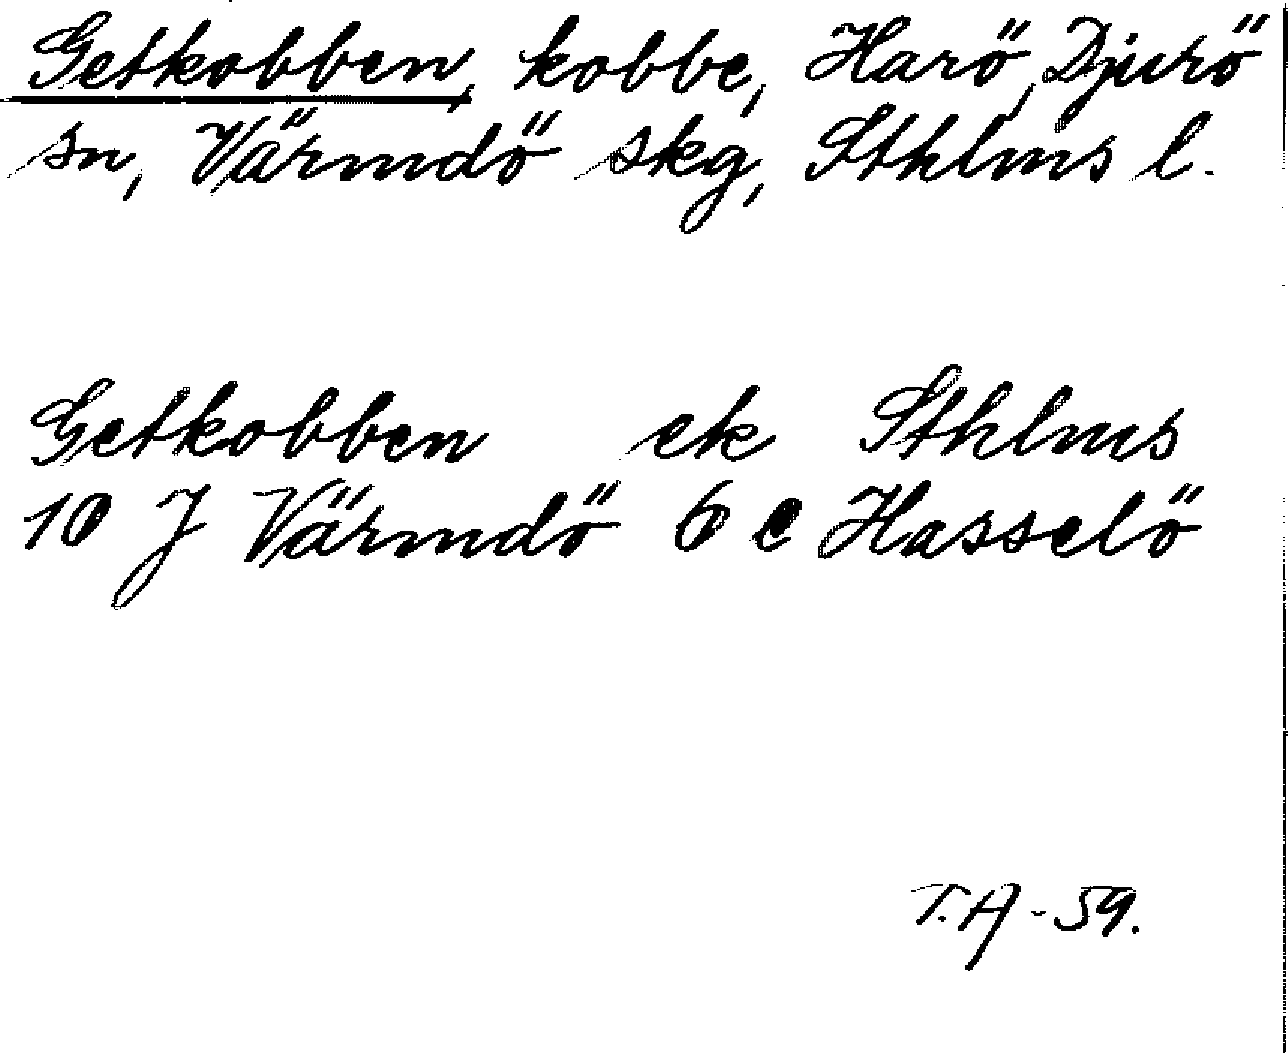 Getkobben, kobbe, Harö, Djurö
sn, Värmdö skg, Sthlms l.
Getkobben ek Sthlms
10 J Värmdö 6 e Hasselö
T.A-59.